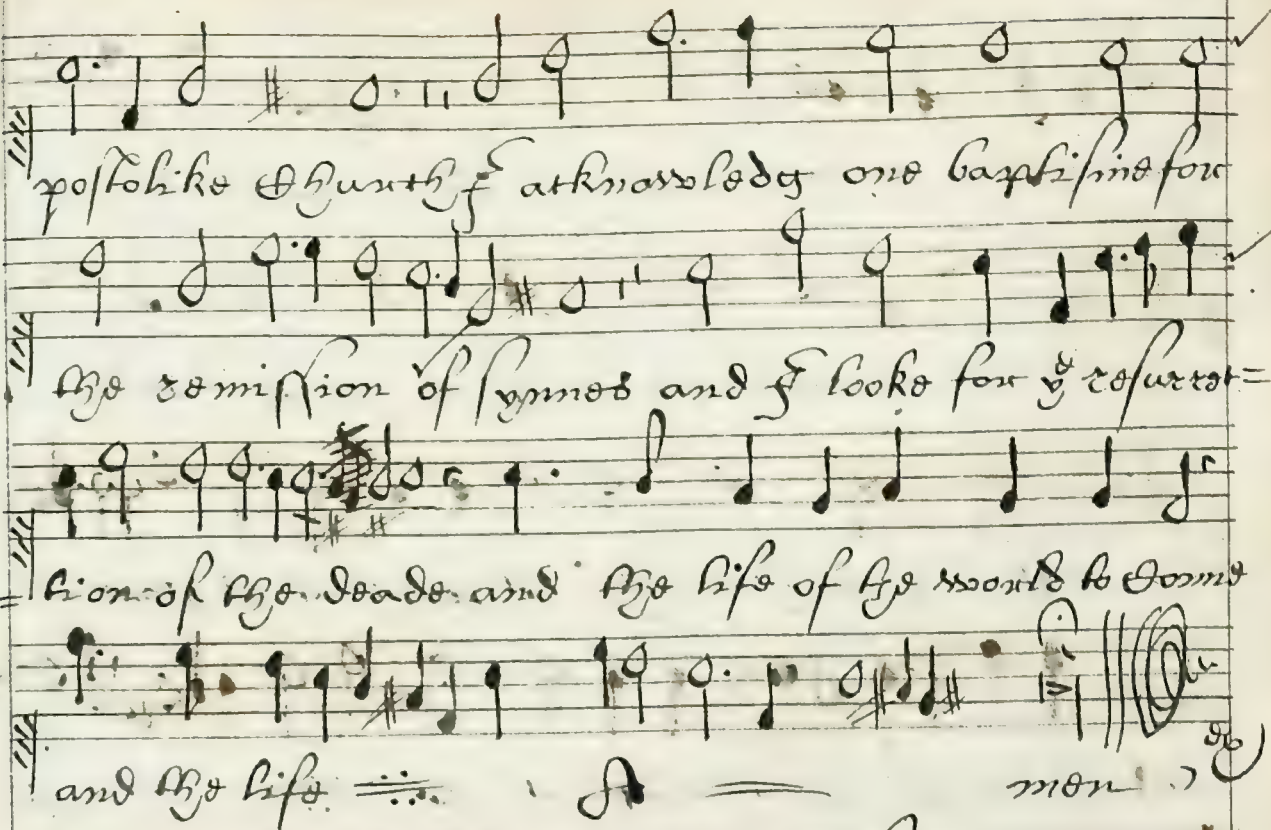 postolike Church I acknowledg one baptisme for
the remission of synnes and I looke for ye resurrec=
=tion of the deade and the life of the world to Come
and the life A men